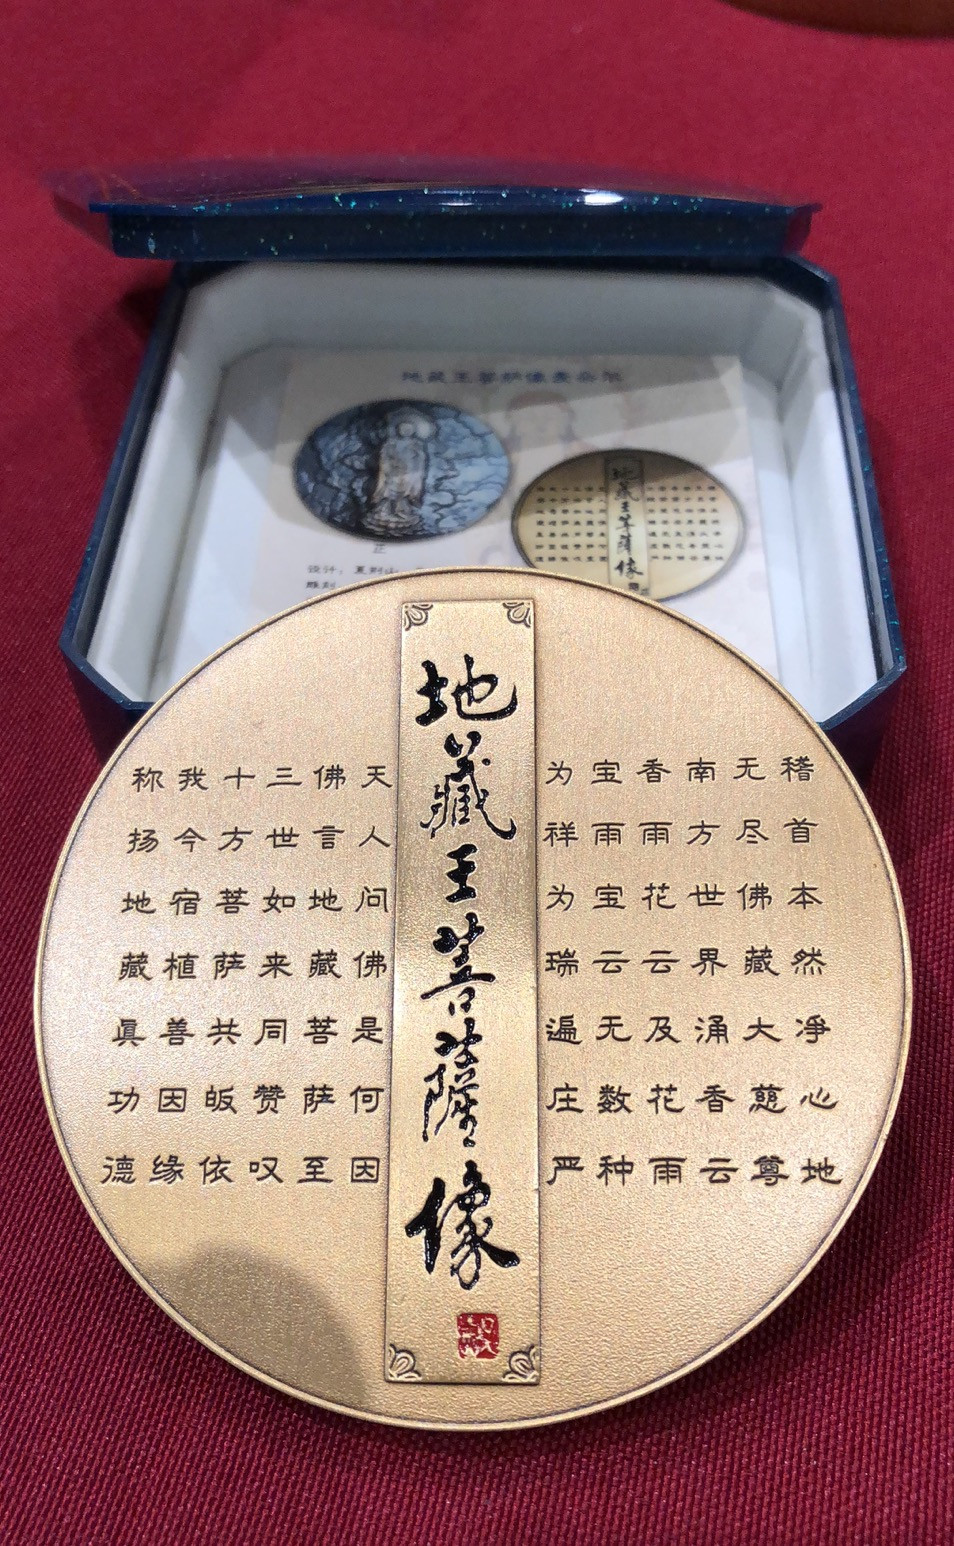 正
设计：夏荆山
雕刻
地藏王菩薩像
稽首本然凈心地
无尽佛藏大慈尊
南方世界涌香云
香雨花云及花雨
宝雨宝云无数种
为祥为瑞遍庄严
地藏王菩薩像
天人问佛是何因
佛言地藏菩萨至
三世如来同赞叹
十方菩萨共皈依
我今宿植善因缘
称扬地藏眞功德